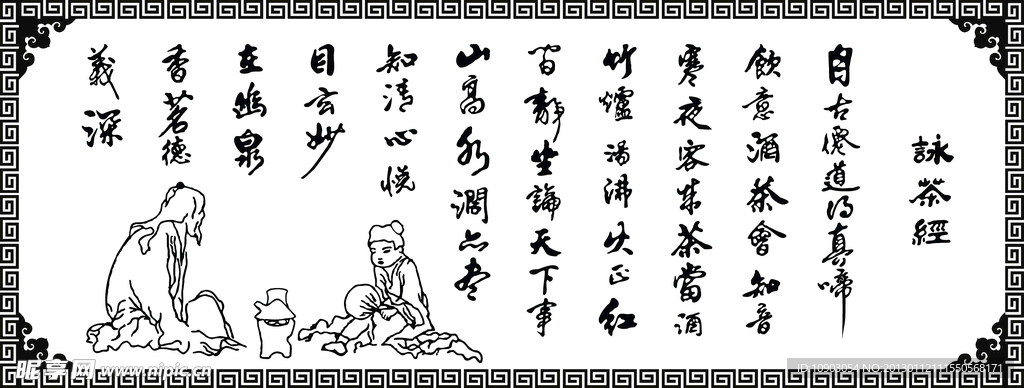 詠茶經
自古僊道得真啼
飲意酒茶會知音
寒夜客來茶當酒
竹爐湯沸火正紅
皆靜坐論天下事
山高水濶亦盡
知清心悅
目玄妙
在幽泉
香茗德
義深
昵享网 www.nipic.cn
ID:10903054 NO:20130112111550568171